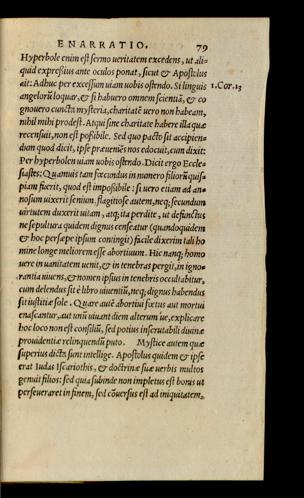 ENARRATIO. 79
Hyperbole enim est sermo ueritatem excedens, ut ali-
quid expreßius ante oculos ponat, sicut & Apostolus
ait: Adhuc per excessum uiam uobis ostendo. Si linguis 1. Cor. 13
angelorũ loquar, & si habuero omnem scientiã, & co
gnouero cuncta mysteria, charitatẽ uero non habeam,
nihil mihi prodest. Atqui sine charitate habere illa quæ
recensuit, non est poßibile. Sed quo pacto sit accipien-
dum quod dicit, ipse præuenit nos edocuit, cum dixit:
Per hyperbolen uiam uobis ostendo. Dicit ergo Eccle-
siastes: Quamuis tam fœcundus in numero filiorũ quis-
piam fuerit, quod est impoßibile: si uero etiam ad an-
nosum uixerit senium. flagitiose autem, neq; secundum
uirtutem duxerit uitam, atq; ita perdite, ut defunctus
ne sepultura quidem dignus censeatur (quandoquidem
& hoc persæpe ipsum contingit) facile dixerim tali ho
mine longe meliorem esse abortiuum. Hic nanq; homo
uere in uanitatem uenit, & in tenebras pergit, in igno-
rantia uiuens, & nomen ipsius in tenebris occultabitur,
cum delendus sit è libro uiuentiũ, neq; dignus habendus
sit iustitiæ sole. Quare autẽ abortiui fœtus aut mortui
enascantur, aut unũ uiuant diem alterum ùe, explicare
hoc loco non est consiliũ, sed potius inscrutabili diuinæ
prouidentiæ relinquendũ puto. Mystice autem quæ
superius dicta sunt intellige. Apostolus quidem & ipse
erat Iudas Iscariothis, & doctrinæ suæ uerbis multos
genuit filios: sed quia subinde non impletus est bonis ut
perseueraret in finem, sed cõuersus est ad iniquitatem,